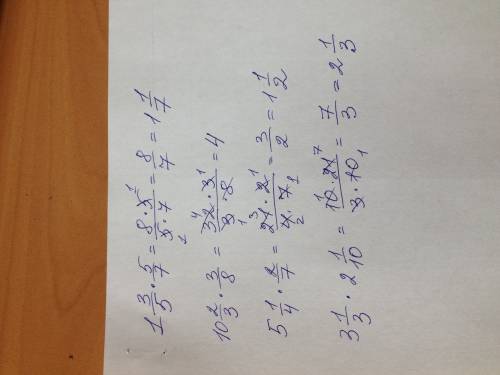 1 3/5 · 5/7 = 8·5 1/5·7 1 = 8/7 = 1 1/7
10 2/3 · 3/8 = 4 32·3 1/1 3·8 = 4
5 1/4 · 2/7 = 3 21·2 1/2 4·7 1 = 3/2 = 1 1/2
3 1/3 · 2 1/10 = 1 10·21 7/3·10 1 = 7/3 = 2 1/3